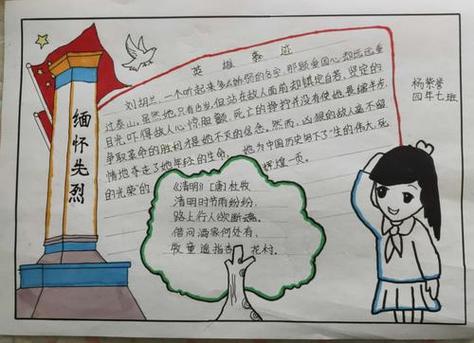 英雄事迹
刘胡兰,一个听起来多么娇弱的名字,那颗爱国心却远远重
过泰山,虽然她只有15岁,但站在敌人面前却镇定自若,坚定的
目光,吓得敌人心惊胆颤,死亡的挣拧并没有使她畏缩半点,
争取革命的胜利才是她不灭的信念。然而,凶狠的敌人毫不留
情地夺走了她年轻的生命。她为中国历史留下了"生的伟大,死
的光荣"的辉煌一页。
缅怀先烈
杨紫誉
四年七班
《清明》[唐]杜牧
清明时节雨纷纷,
路上行人欲断魂。
借问酒家何处有,
牧童遥指杏花村。